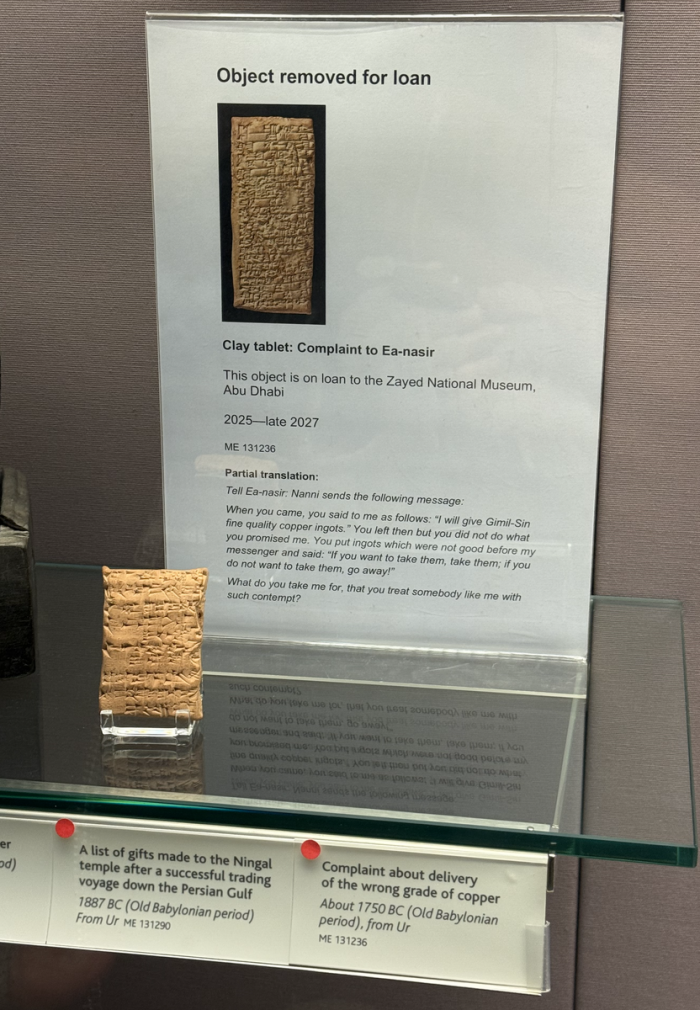 Object removed for loan
Clay tablet: Complaint to Ea-nasir
This object is on loan to the Zayed National Museum,
Abu Dhabi
2025—late 2027
ME 131236
Partial translation:
Tell Ea-nasir: Nanni sends the following message:
When you came, you said to me as follows: "I will give Gimil-Sin
fine quality copper ingots." You left then but you did not do what
you promised me. You put ingots which were not good before my
messenger and said: "If you want to take them, take them; if you
do not want to take them, go away!"
What do you take me for, that you treat somebody like me with
such contempt?
er
od)
A list of gifts made to the Ningal
temple after a successful trading
voyage down the Persian Gulf
1887 BC (Old Babylonian period)
From Ur ME 131290
Complaint about delivery
of the wrong grade of copper
About 1750 BC (Old Babylonian
period), from Ur
ME 131236